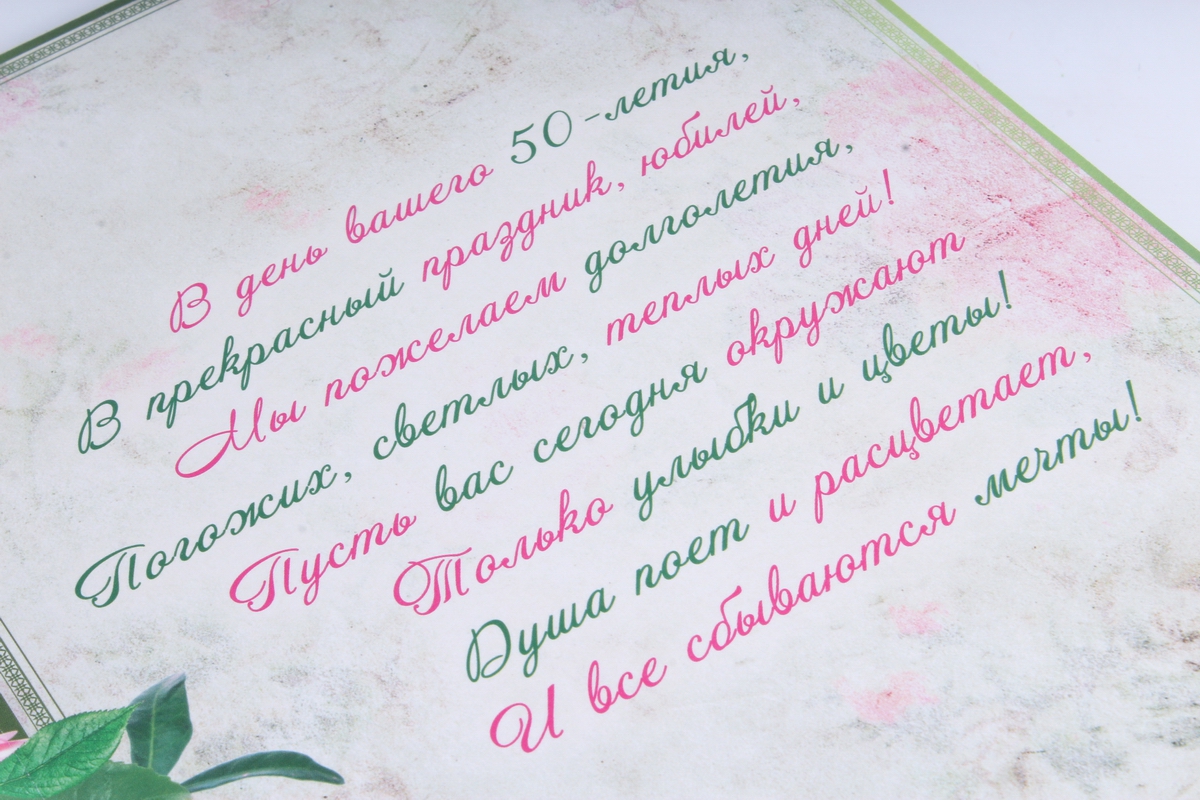 В день вашего 50-летия,
В прекрасный праздник, юбилей,
Мы пожелаем долголетия,
Погожих, светлых, теплых дней!
Пусть вас сегодня окружают
Только улыбки и цветы!
Душа поет и расцветает,
И все сбываются мечты!